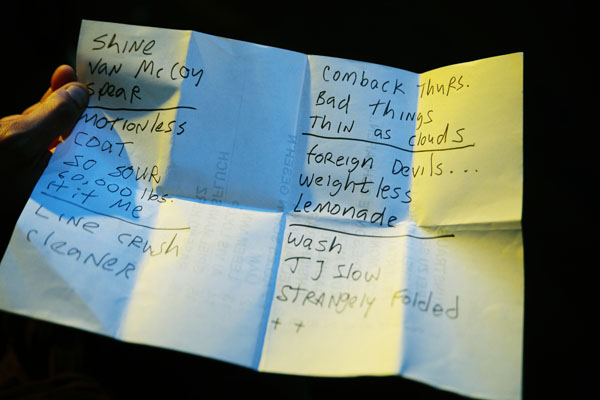 Shine
Van McCoy
Spear
Motionless
Coat
So Sour
60,000 lbs.
Hit Me
Line Crush
Cleaner
Comback Thurs.
Bad Things
Thin as clouds
Foreign Devils...
Weightless
Lemonade
Wash
JJ Slow
Strangely Folded
++